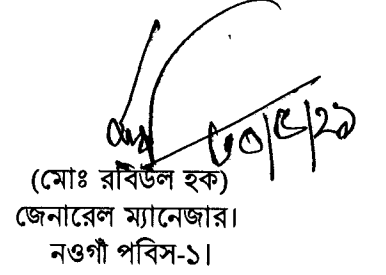 ৩০/৫/২১
(মোঃ রবিউল হক)
জেনারেল ম্যানেজার।
নওগাঁ পবিস-১।